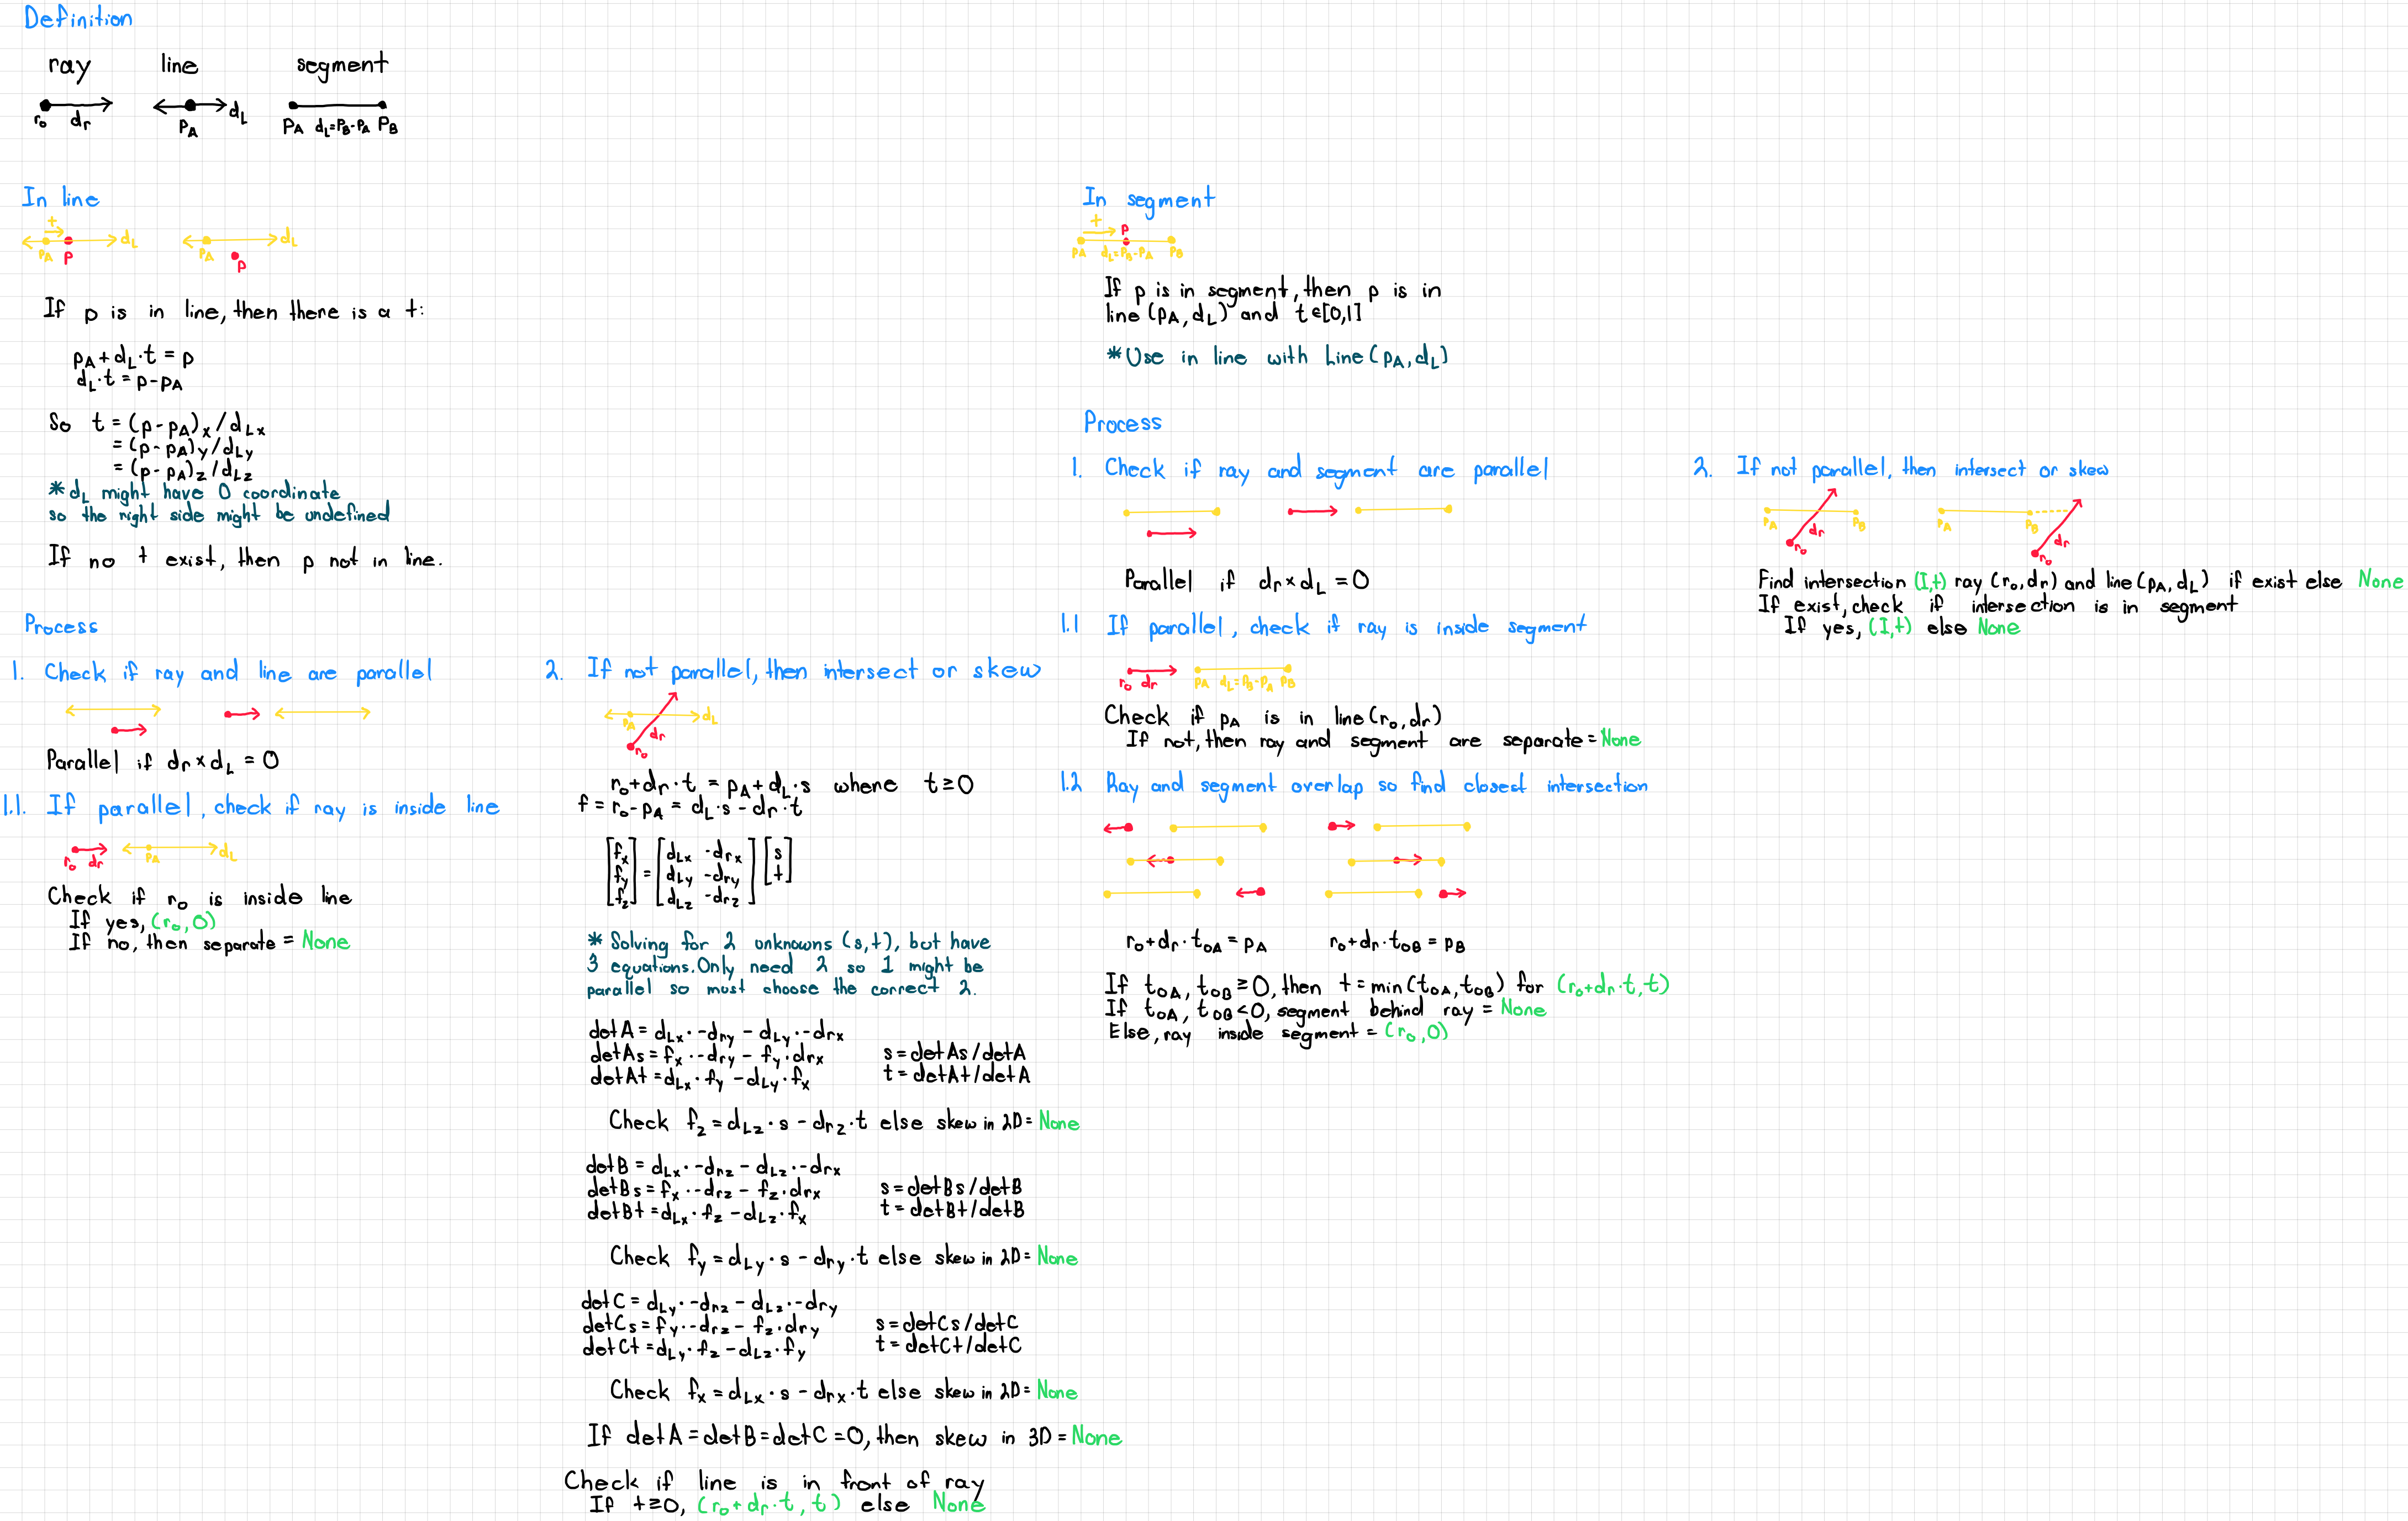 Definition
ray line segment
r₀ dᵣ
p_A d_L
p_A d_L=p_B-p_A p_B
In line
+
p_A p d_L
p_A p d_L
If p is in line, then there is a t:
p_A+d_L·t = p
d_L·t = p-p_A
So t = (p-p_A)ₓ/d_Lx
= (p-p_A)y/d_Ly
= (p-p_A)z/d_Lz
*d_L might have 0 coordinate
so the right side might be undefined
If no t exist, then p not in line.
Process
1. Check if ray and line are parallel
Parallel if dᵣ×d_L = 0
1.1. If parallel, check if ray is inside line
r₀ dᵣ p_A d_L
Check if r₀ is inside line
If yes, (r₀,0)
If no, then separate = None
2. If not parallel, then intersect or skew
p_A d_L
dᵣ
r₀
r₀+dᵣ·t = p_A+d_L·s where t≥0
f = r₀-p_A = d_L·s - dᵣ·t
[fx] = [d_Lx -d_rx] [s]
[fy] [d_Ly -d_ry] [t]
[fz] [d_Lz -d_rz]
* Solving for 2 unknowns (s,t), but have
3 equations. Only need 2 so 1 might be
parallel so must choose the correct 2.
detA = d_Lx·-d_ry - d_Ly·-d_rx
detAs = fx·-d_ry - fy·d_rx s = detAs/detA
detAt = d_Lx·fy - d_Ly·fx t = detAt/detA
Check fz = d_Lz·s - d_rz·t else skew in 2D = None
detB = d_Lx·-d_rz - d_Lz·-d_rx
detBs = fx·-d_rz - fz·d_rx s = detBs/detB
detBt = d_Lx·fz - d_Lz·fx t = detBt/detB
Check fy = d_Ly·s - d_ry·t else skew in 2D = None
detC = d_Ly·-d_rz - d_Lz·-d_ry
detCs = fy·-d_rz - fz·d_ry s = detCs/detC
detCt = d_Ly·fz - d_Lz·fy t = detCt/detC
Check fx = d_Lx·s - d_rx·t else skew in 2D = None
If detA = detB = detC = 0, then skew in 3D = None
Check if line is in front of ray
If t≥0, (r₀+dᵣ·t, t) else None
In segment
+ p
p_A d_L=p_B-p_A p_B
If p is in segment, then p is in
line (p_A, d_L) and t∈[0,1]
*Use in line with Line(p_A, d_L)
Process
1. Check if ray and segment are parallel
Parallel if dᵣ×d_L = 0
1.1 If parallel, check if ray is inside segment
r₀ dᵣ p_A d_L=p_B-p_A p_B
Check if p_A is in line(r₀, dᵣ)
If not, then ray and segment are separate = None
1.2 Ray and segment overlap so find closest intersection
r₀+dᵣ·t₀A = p_A r₀+dᵣ·t₀B = p_B
If t₀A, t₀B ≥ 0, then t = min(t₀A, t₀B) for (r₀+dᵣ·t, t)
If t₀A, t₀B < 0, segment behind ray = None
Else, ray inside segment = (r₀,0)
2. If not parallel, then intersect or skew
p_A dᵣ p_B r₀
p_A p_B dᵣ r₀
Find intersection (I,t) ray (r₀,dᵣ) and line (p_A, d_L) if exist else None
If exist, check if intersection is in segment
If yes, (I,t) else None